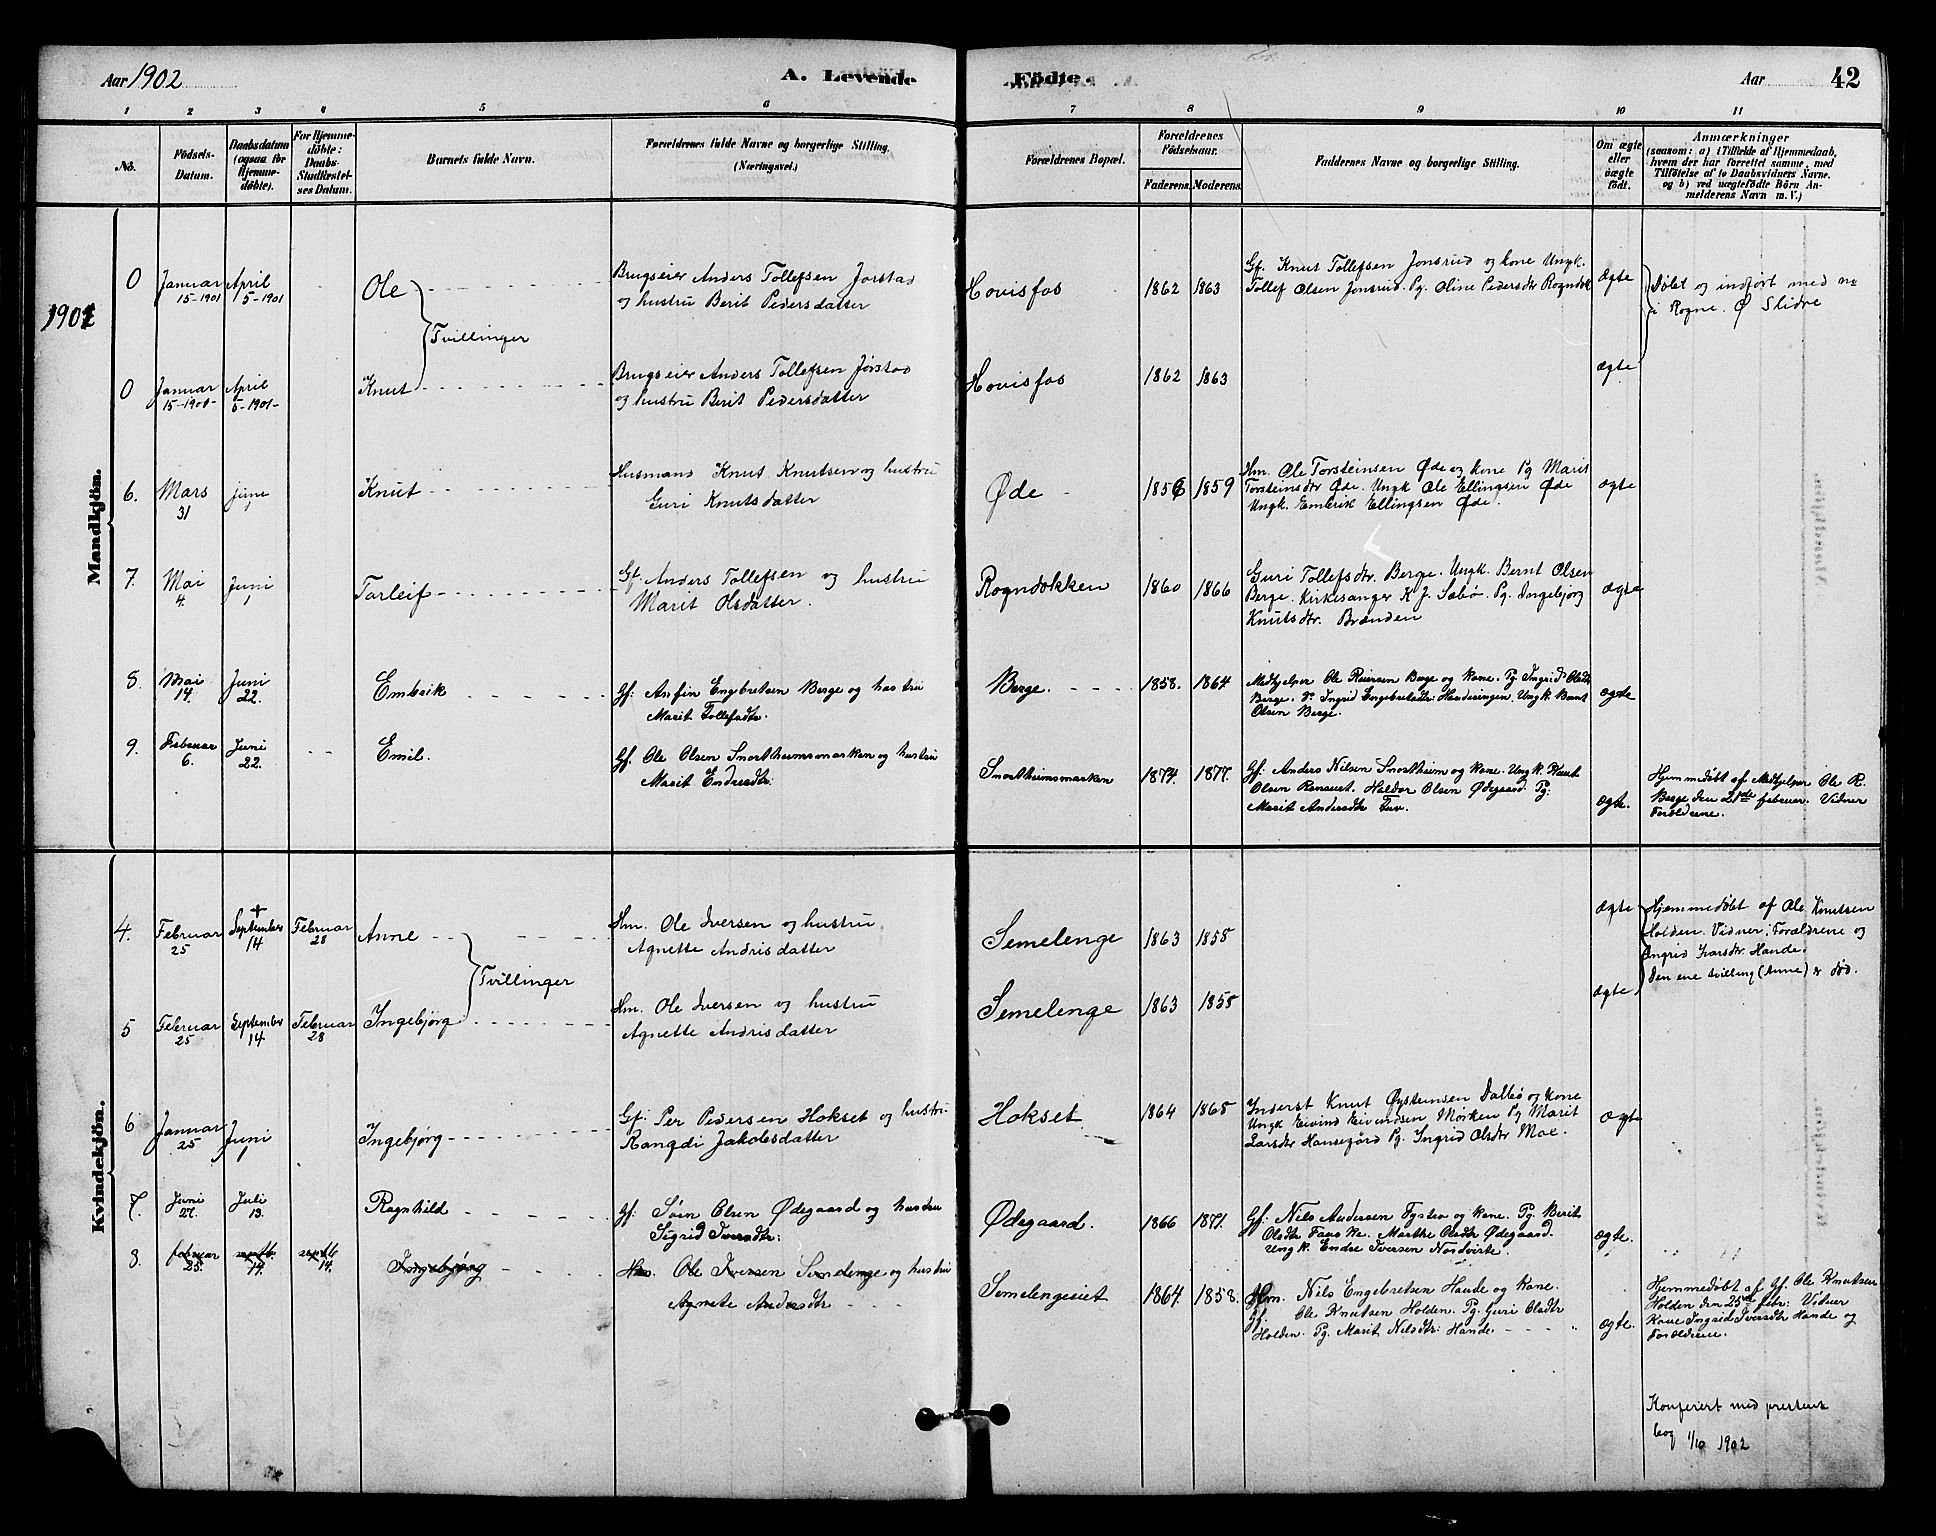 Aar 1902
A. Levende
Födte.
Aar
42
1 2 3 4 5 6 7 8 9 10 11
No.
Födsels-
Datum.
Daabsdatum
(ogsaa for
Hjemme-
döbte).
For Hjemme-
döbte:
Daabs-
Stadfæstel-
ses Datum.
Barnets fulde Navn.
Forældrenes fulde Navne og borgerlige Stilling.
(Næringsvei.)
Forældrenes Bopæl.
Forældrenes
Födselsaar.
Faderens. Moderens.
Faddernes Navne og borgerlige Stilling.
Om ægte
eller
uægte
født.
Anmærkninger
(saasom: a) i Tilfælde af Hjemmedaab,
hvem der har forrettet samme, med
Tilföielse af to Daabsvidners Navne,
og b) ved uægtefödte Börn An-
melderens Navn m. V.)
Mandkjön.
1901
0 Januar 15-1901 April 5-1901 Ole
Brugseier Anders Tollefsen Jørstad
og hustru Berit Pedersdatter
Hovisfos 1862 1863
Gf. Knut Tollefsen Jonsrud og kone Ungk.
Tollef Olsen Jonsrud. Pg. Oline Pedersdtr Rogndok
ægte
Døbt og indført med
i Rogne. Ø Slidre
Tvillinger
0 Januar 15-1901- April 5-1901- Knut
Brugseier Anders Tollefsen Jørstad
og hustru Berit Pedersdatter
Hovisfos 1862 1863
ægte
6. Mars 31 Juni 1 Knut
Husmand Knut Knutsen og hustru
Guri Knutsdatter
Øde 1856 1859
Hm. Ole Torsteinsen Øde og kone Pg Marit
Torsteinsdtr Øde. Ungk Ole Ellingsen Øde
Ungk. Embrik Ellingsen Øde.
ægte
7. Mai 4. Juni 1 Torleif
Gf. Anders Tollefsen og hustru
Marit Olsdatter.
Rogndokken 1860 1866
Guri Tollefsdtr. Berge. Ungk. Bernt Olsen
Berge. Kirkesanger K J. Sæbø. Pg. Ingebjørg
Knutsdtr. Brænden
ægte
8. Mai 14. Juni 22. Embrik
Gf: Anfin Engebretsen Berge og hustru
Marit Tollefsdtr.
Berge. 1858. 1864
Medhjelper Ole Reiersen Berge og kone. Pg Ingrid Olsdtr
Berge. Do Ingrid Engebretsdtr: Handeringen. Ungk Bernt
Olsen Berge.
ægte
9. Februar 6. Juni 22. Emil.
Gf. Ole Olsen Snortheimsmarken og hustru
Marit Endresdtr:
Snortheimsmarken 1874. 1877.
Gf: Anders Nilsen Snortheim og kone. Ungk. Knut
Olsen Ransuet. Haldor Olsen Ødegaard. Pg:
Marit Andersdtr Tuv.
ægte.
Hjemmedøbt af Medhjelper Ole R.
Berge den 21de februar. Vidner
Forældrene.
Kvindekjön.
4. Februar 25 September 14 Februar 28 Anne
Hm. Ole Iversen og hustru
Agnette Andrisdatter
Semelenge 1863 1858
ægte
Hjemmedøbt af Ole Knutsen
Holden. Vidner: Forældrene og
Ingrid Ivarsdtr. Hande.
Den ene tvilling (Anne) er død.
Tvillinger
5 Februar 25 September 14 Februar 28 Ingebjørg
Hm. Ole Iversen og hustru
Agnette Andrisdatter
Semelenge 1863 1858
ægte
6 Januar 25 Juni 1 Ingebjørg
Gf: Per Pedersen Hokset og hustru
Rangdi Jakobsdatter
Hokset 1864 1868
Inderst Knut Øysteinsen Dalbø og kone
Ungk Eivind Eivindsen Mørken Pg Marit
Larsdtr Hansegård Pg. Ingrid Olsdtr Moe.
ægte
7. Juni 27. Juli 13. Ragnhild
Gf: Søren Olsen Ødegaard og hustru
Sigrid Iversdtr:
Ødegaard. 1866 1871.
Gf: Nils Andersen Tystro og kone. Pg. Berit
Olsdtr Fauske. Marthe Olsdtr Ødegaard.
Ungk. Endre Iversen Nordvirte.
ægte.
8. februar 25. septb. 14. septb 14. Ingebjørg
Hm. Ole Iversen Semelenge og hustru
Agnete Andersdtr
Semelengeeiet 1864. 1858.
Hm. Nils Engebretsen Hande og kone.
Gf. Ole Knutsen Holden. Pg. Guri Olsdtr
Holden. Pg. Marit Nilsdtr: Hande.
ægte.
Hjemmedøbt af Gf. Ole Knutsen
Holden den 25de febr: Vidner
Kone Ingrid Iversdtr Hande og
Forældrene.
Konfereret med prestens
bog 1/10 1902